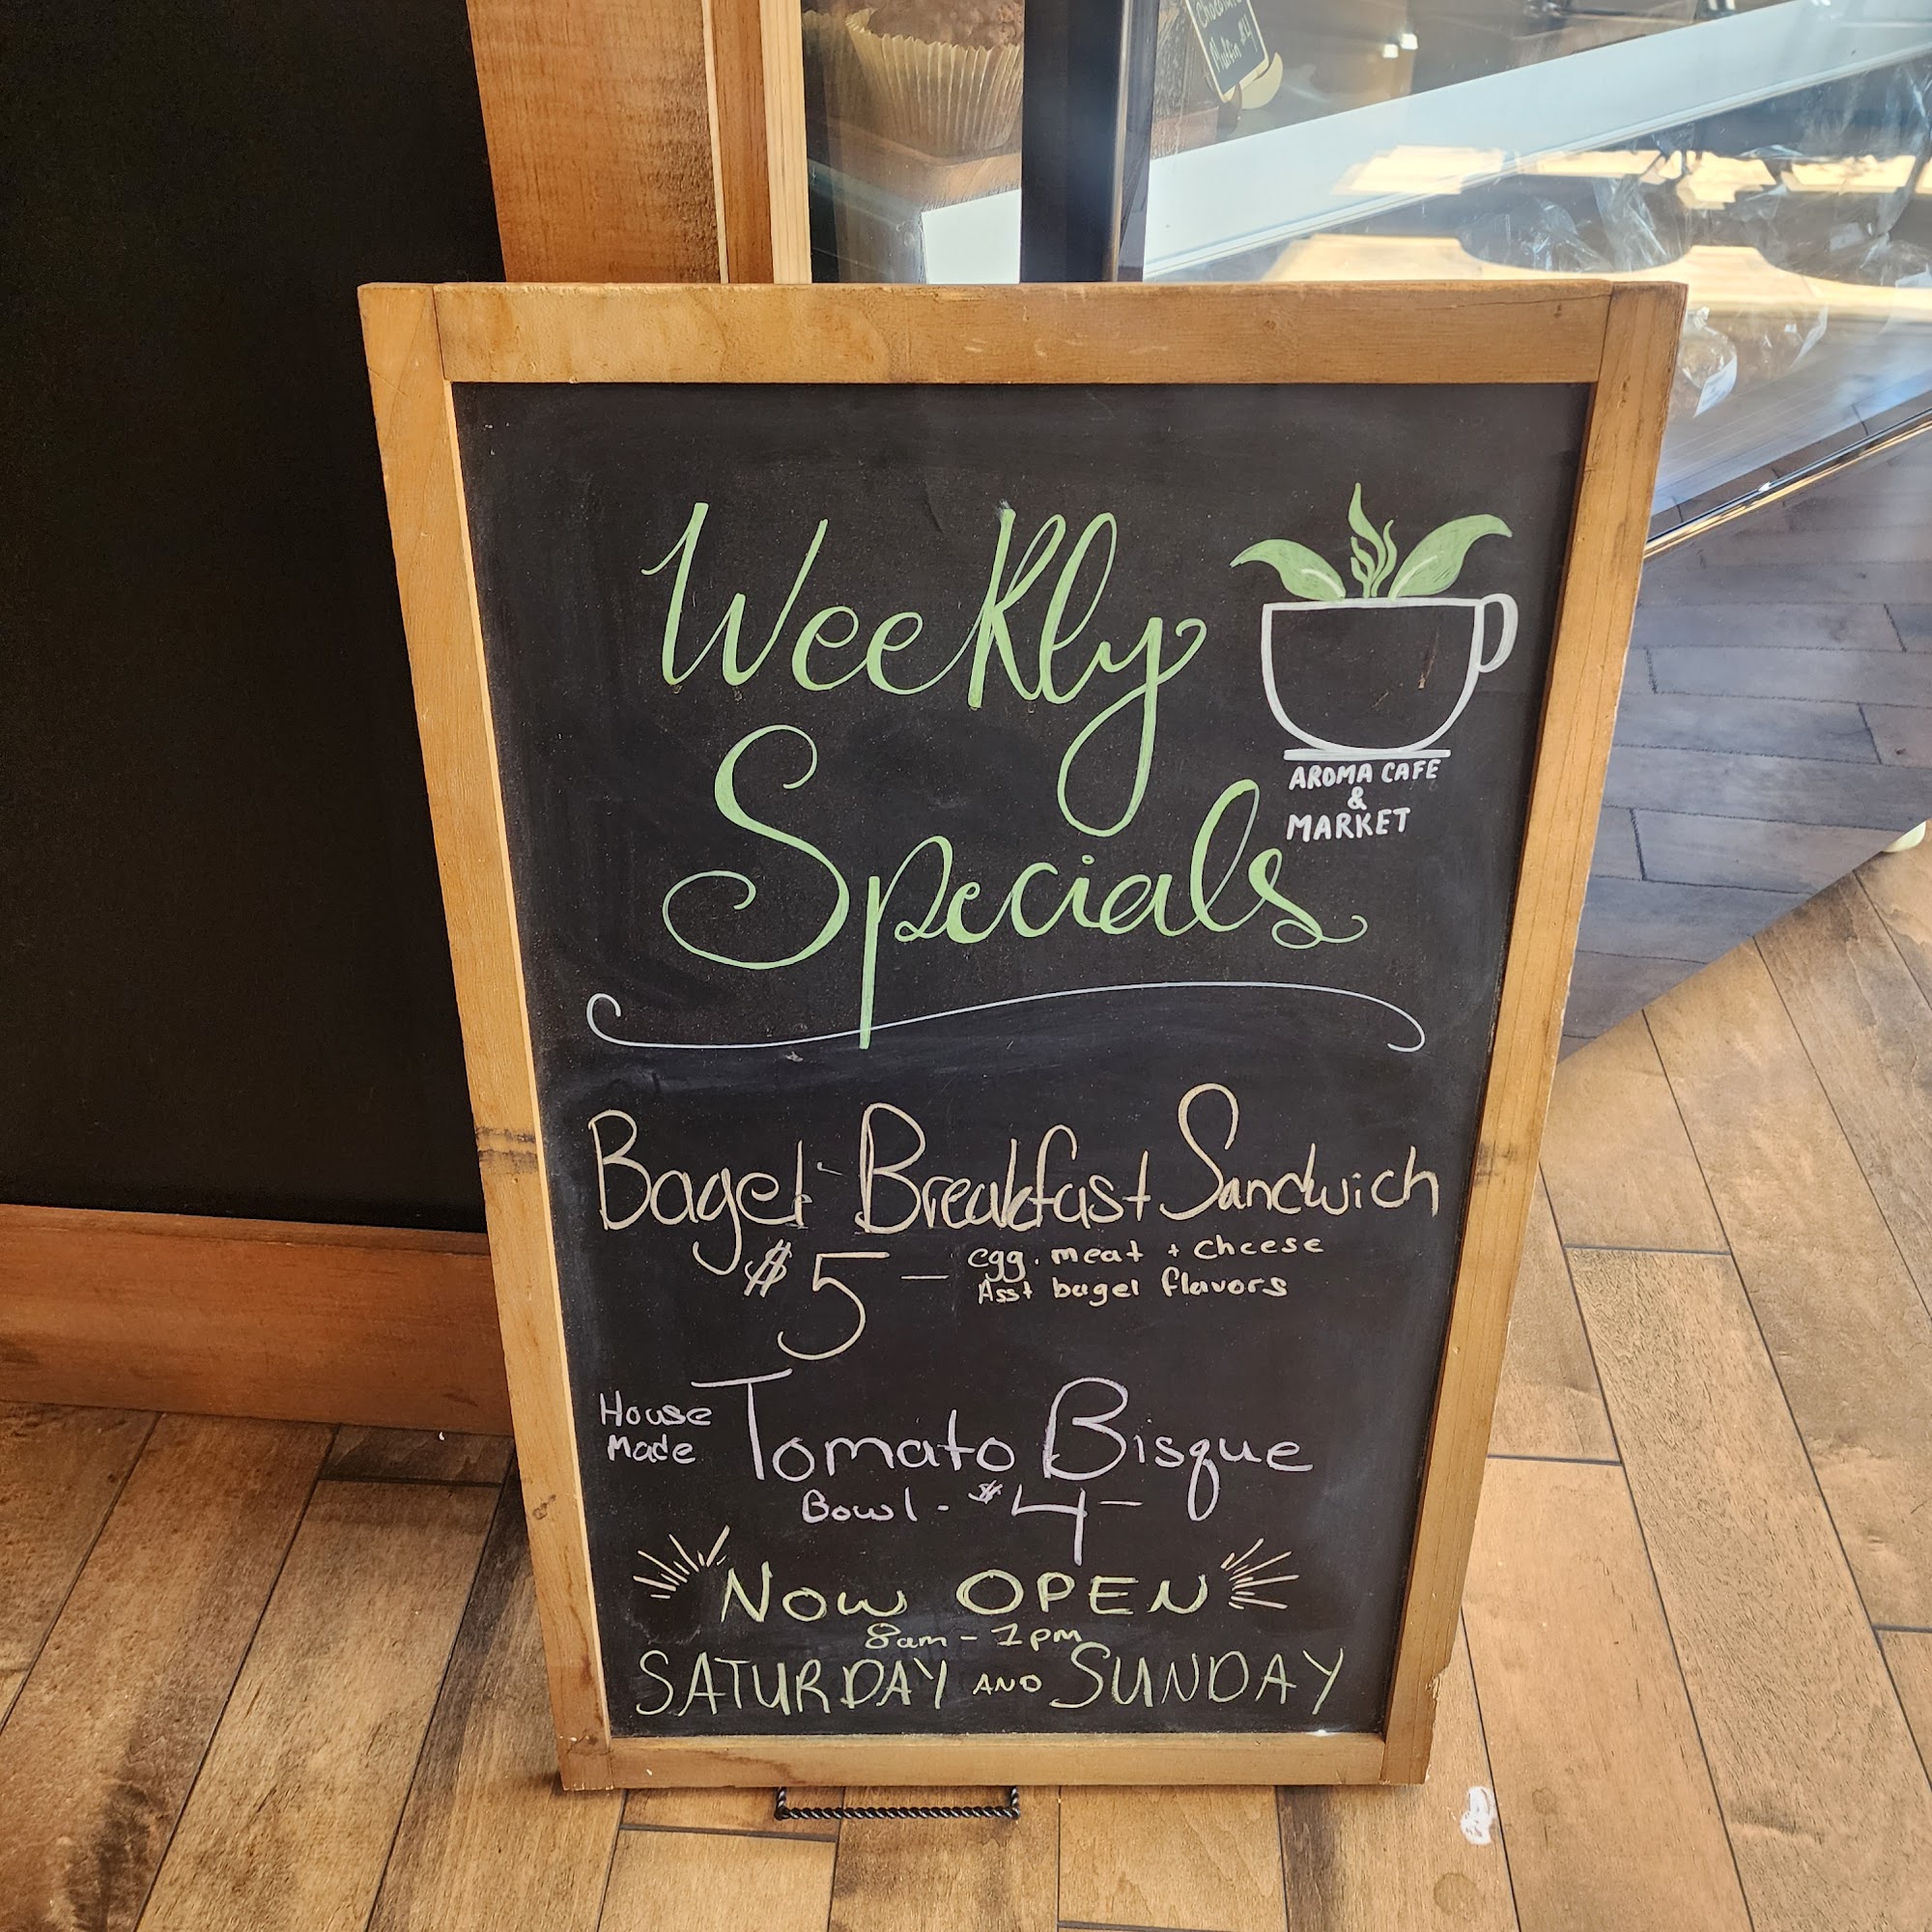 Chocolate
Muffin $4
Weekly
Specials
AROMA CAFE
&
MARKET
Bagel Breakfast Sandwich
$5 — egg, meat + cheese
Asst bagel flavors
House
Made
Tomato Bisque
Bowl - $4 —
NOW OPEN
8am - 1pm
SATURDAY AND SUNDAY